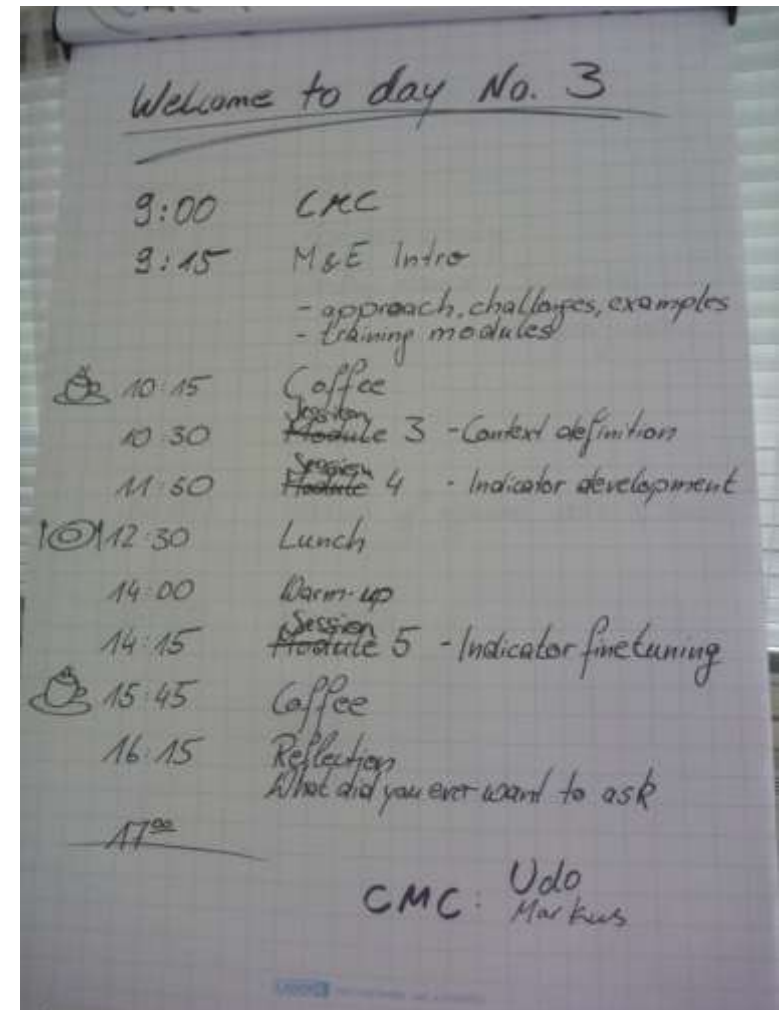 Welcome to day No. 3
9:00 CMC
9:15 M&E Intro
- approach, challenges, examples
- training modules
10:15 Coffee
Session
10 30 Module 3 - Context definition
Session
11:50 Module 4 - Indicator development
12 30 Lunch
14:00 Warm-up
Session
14:15 Module 5 - Indicator finetuning
15:45 Coffee
16:15 Reflection
What did you ever want to ask
1700
CMC: Udo
Markus